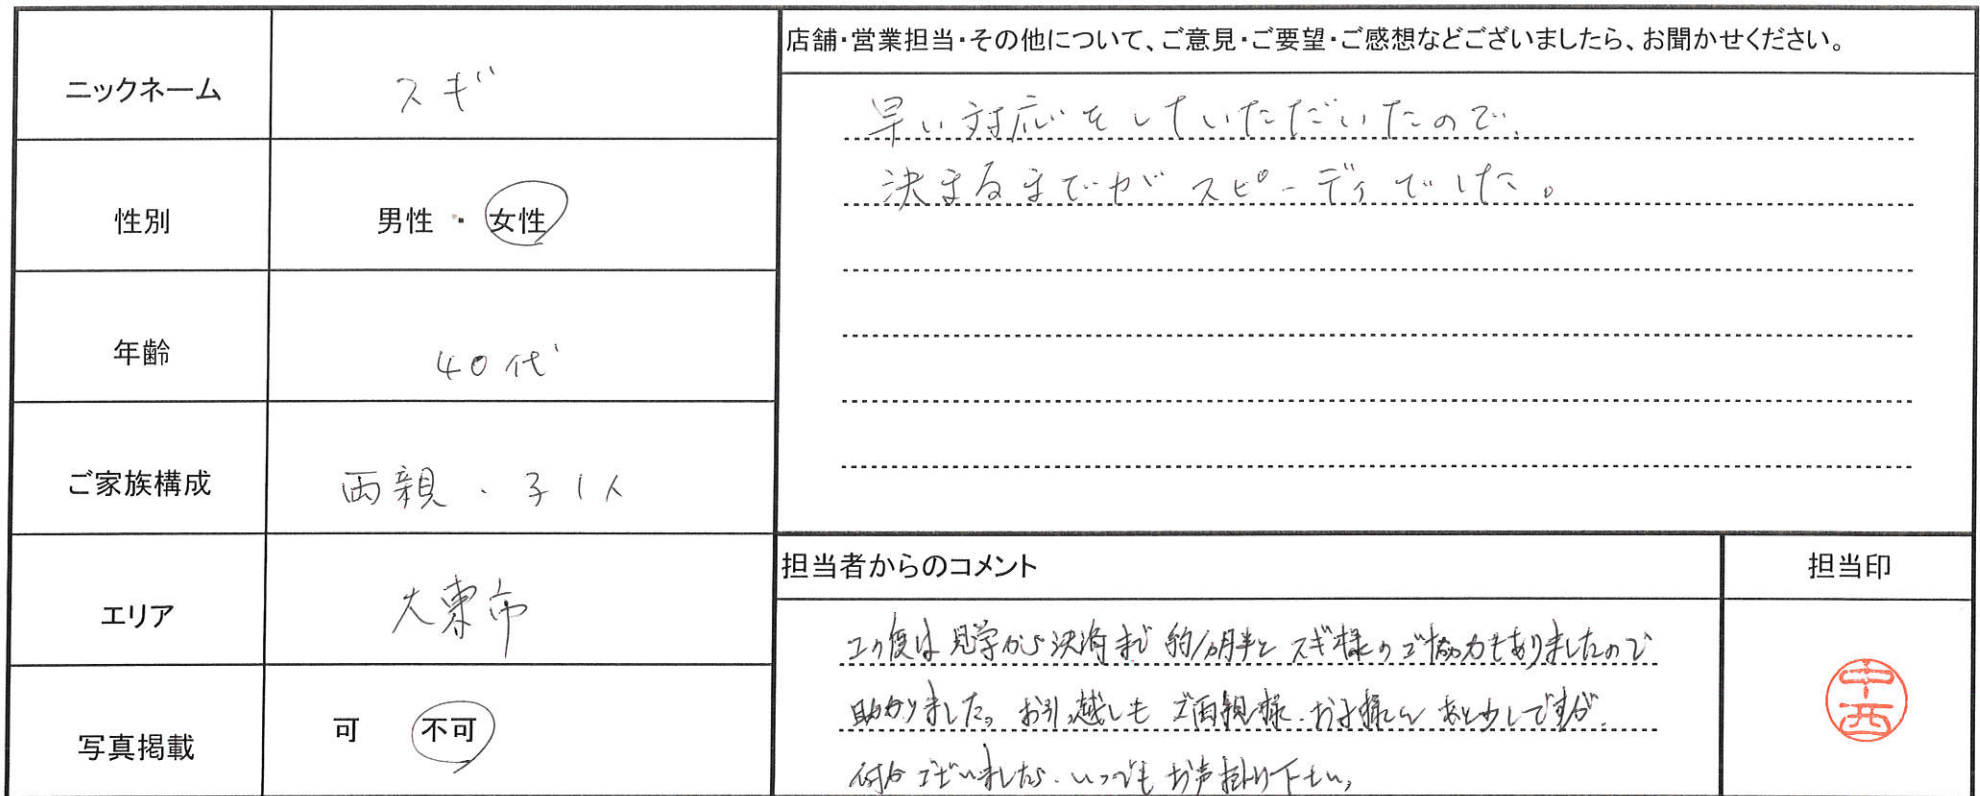 ニックネーム
スギ
性別
男性 ・ 女性
年齢
40代
ご家族構成
両親 ・ 子1人
エリア
大東市
写真掲載
可 不可
店舗・営業担当・その他について、ご意見・ご要望・ご感想などございましたら、お聞かせください。
早い対応をしていただいたので、
決まるまでがスピーディでした。
担当者からのコメント
この度は見学から決済まで約1ヵ月半とスギ様のご協力もありましたので
助かりました。お引っ越しもご両親様、お子様とあと少しですが、
何かございましたら、いつでもお声掛け下さい。
担当印
中西